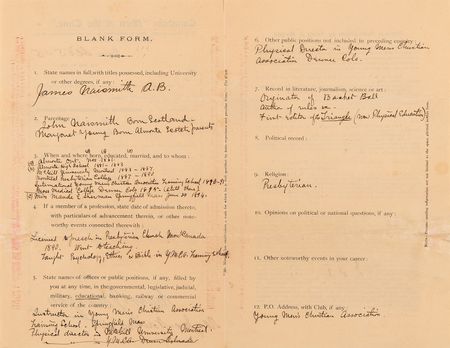 BLANK FORM.
1. State names in full, with titles possessed, including University
or other degrees, if any:
James Naismith A.B.
2. Parentage
John Naismith Born Scotland
Margaret Young Born Almonte Scotch parents
3. When and where born, educated, married, and to whom:
Almonte Ont. Nov
Almonte High School
McGill University Montreal 1883 - 1887
Montreal Presbyterian College 1887 - 1890
International Young Mens Christian Association Training School 1890-91
Gross Medical College Denver Colo. 1895-
Miss Maude E. Sherman Springfield Mass June 20 1894.
4. If a member of a profession, state date of admission thereto,
with particulars of advancement therein, or other note-
worthy events connected therewith:
Licensed to preach in Presbyterian Church Mon Canada
1890. Went to teaching
Taught Psychology, Ethics & Bible in Y.M.C.A. Training School
5. State names of offices or public positions, if any, filled by
you at any time, in the governmental, legislative, judicial,
military, educational, banking, railway or commercial
service of the country:
Instructor in Young Men's Christian Association
Training School. Springfield Mass
Physical director in McGill University Montreal.
Y.M.C.A. Denver Colorado
6. Other public positions not included in preceding query:
Physical Director in Young Men's Christian
Association Denver Colo.
7. Record in literature, journalism, science or art:
Originator of Basket Ball
Author of rules
First editor of Triangle (now Physical Education)
8. Political record:
9. Religion:
Presbyterian.
10. Opinions on political or national questions, if any:
11. Other noteworthy events in your career:
12. P.O. Address, with Club, if any:
Young Men's Christian Association.